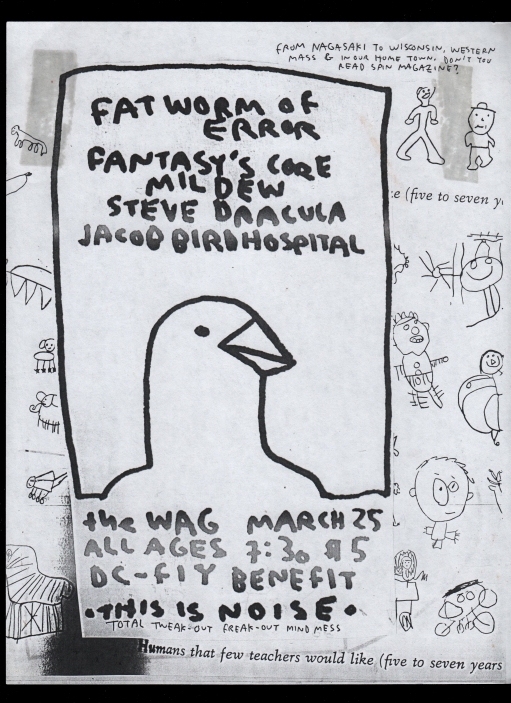 FROM NAGASAKI TO WISCONSIN, WESTERN
MASS & IN OUR HOME TOWN. DON'T YOU
READ SPIN MAGAZINE?
FAT WORM OF
ERROR
FANTASY'S CORE
MILDEW
STEVE DRACULA
JACOB BIRDHOSPITAL
(five to seven y
the WAG MARCH 25
ALL AGES 7:30 $5
DC-FIY BENEFIT
•THIS IS NOISE•
TOTAL TWEAK-OUT FREAK-OUT MIND MESS
Humans that few teachers would like (five to seven years